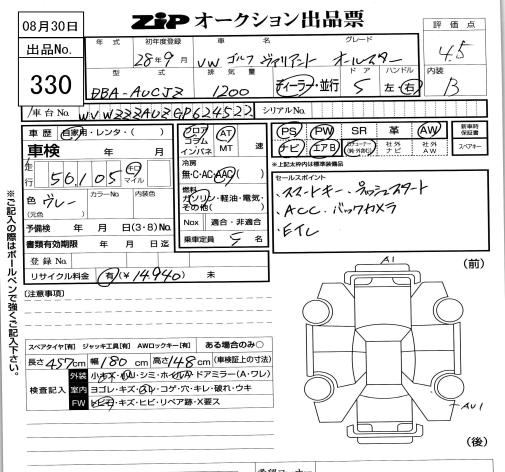 08月30日
ZIP オークション出品票
評価点
4.5
出品No.
330
年式 初年度登録 車名 グレード
28年9月 VW ゴルフ ヴァリアント オールスター
型式 排気量 ドア ハンドル
DBA-AUCJZ 1200 ディーラー・並行 5 左・右
内装
B
車台No. WVWZZZAUZGP624522 シリアルNo.
車歴 自家用・レンタ・( )
車検 年 月
走行 56,105 キロ マイル
色 グレー カラーNo. 内装色
(元色)
予備検 年 月 日(3・8)No.
書類有効期限 年 月 日迄
登録No.
リサイクル料金 有(¥14,940) 未
フロア コラム インパネ AT MT 速
冷房
無・C・AC・AAC( )
燃料
ガソリン・軽油・電気・その他( )
Nox 適合・非適合
乗車定員 5 名
PS PW SR 革 AW 新車時保証書
ナビ エアB 社外ナビ 社外AW スペアキー
※上記太枠内は標準装備品
セールスポイント
・スマートキー・プッシュスタート
・ACC・バックカメラ
・Eイレ
※ご記入の際はボールペンで強くご記入下さい。
[注意事項]
スペアタイヤ[有] ジャッキ工具[有] AWロックキー[有] ある場合のみ○
長さ 457cm 幅 180cm 高さ 148cm (車検証上の寸法)
検査記入
外装 小キズ・凹・シミ・ホイール・ドアミラー(A・ワレ)
室内 ヨゴレ・キズ・スレ・コゲ・穴・キレ・破れ・ウキ
FW トビ石・キズ・ヒビ・リペア跡・X要ス
A1
(前)
AU1
(後)